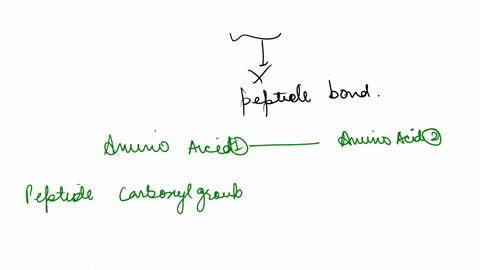 peptide bond.
Amino Acid 1 Amino Acid 2
Peptide Carboxyl group